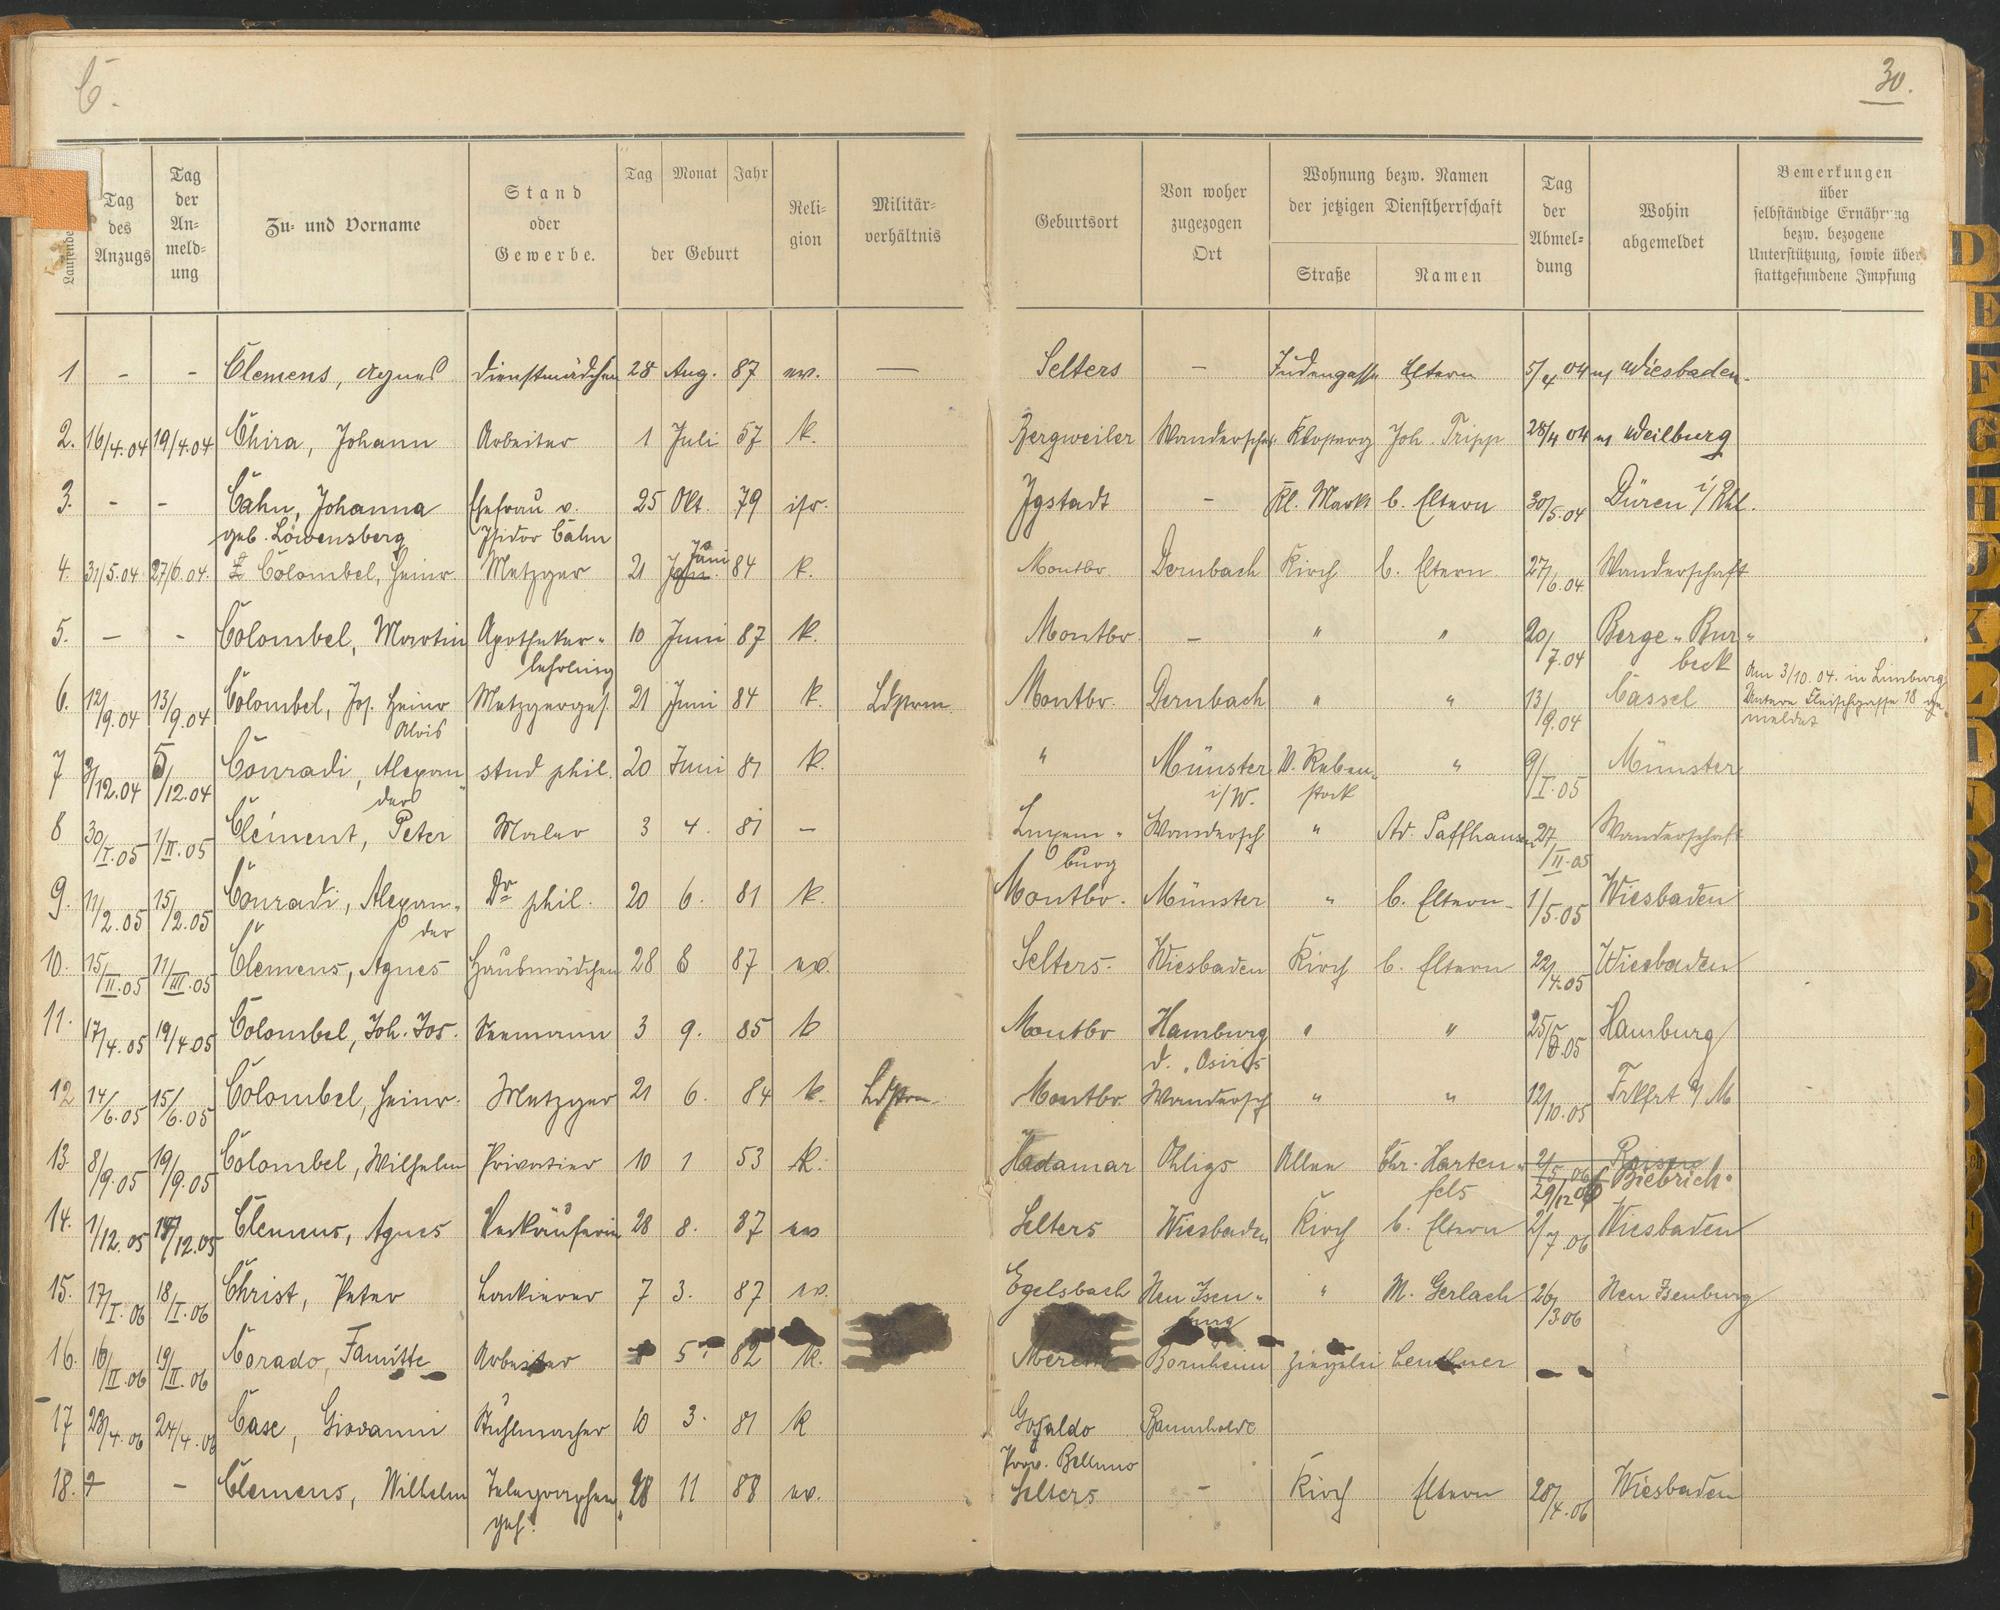 C.
30.
Laufende
Tag des Anzugs
Tag der An- meld- ung
Zu- und Vorname
Stand oder Gewerbe.
Tag Monat Jahr
der Geburt
Reli- gion
Militär- verhältnis
Geburtsort
Von woher zugezogen Ort
Wohnung bezw. Namen der jetzigen Dienstherrschaft
Straße
Namen
Tag der Abmel- dung
Wohin abgemeldet
Bemerkungen über selbständige Ernährung bezw. bezogene Unterstützung, sowie über stattgefundene Impfung
1 - - Clemens, Agnes Dienstmädchen 28 Aug. 87 ev. — Selters - Judengasse Eltern 5/4 04 Wiesbaden.
2. 16/4.04 19/4.04 Chira, Johann Arbeiter 1 Juli 57 k. Bergweiler Wandersch. Joh. Tripp 28/4 04 Weilburg
3. - - Cahn, Johanna Ehefrau v. 25 Okt. 79 isr. Igstadt - Kl. Markt b. Eltern 30/5.04 Düren i/Rhl.
geb. Löwensberg Isidor Cahn
4. 31/5.04. 27/6.04. Colombel, Heinr. Metzger 21 Juni 84 k. Montbr Dernbach Kirch b. Eltern 27/6.04 Wanderschaft
5. — - Colombel, Martin Apotheker- 10 Juni 87 k. Montbr. - " " 20/7.04 Berge-Bor-
lehrling beck
6. 12/9.04 13/9.04 Colombel, Jos. Heinr Metzgerges. 21 Juni 84 k. Ldstrm. Montbr. Dernbach " " 13/9.04 Cassel Am 3/10.04. in Limburg
Alois Untere Fleischgasse 18 ge-
meldet
7 3/12.04 5/12.04 Conradi, Alexan- stud phil. 20 Juni 81 k. " Münster W. Reben- " 9/I.05 Münster
der i/W. stock
8 30/I.05 1/II.05 Clément, Peter Maler 3 4. 81 - Luxem- Wandersch " Ad. Paffhausen 27/II.05 Wanderschaft
burg
9. 11/2.05 15/2.05 Conradi, Alexan- Dr phil. 20 6. 81 k. Montbr. Münster " b. Eltern 1/5.05 Wiesbaden
der
10. 15/II.05 11/III.05 Clemens, Agnes Hausmädchen 28 8 87 ev. Selters. Wiesbaden Kirch b. Eltern 22/4.05 Wiesbaden
11. 17/4.05 19/4.05 Colombel, Joh. Jos. Seemann 3 9. 85 k Montbr Hamburg " " 25/5.05 Hamburg
d. "Osiris
12 14/6.05 15/6.05 Colombel, Heinr. Metzger 21 6. 84 k. Ldstrm. Montbr Wandersch " " 12/10.05 Frkfrt a/M
13. 8/9.05 19/9.05 Colombel, Wilhelm Privatier 10 1 53 k. Hadamar Ohligs Allee Chr. Harten- 2/5.06 Reisen
fels 29/12 06 Biebrich.
14. 1/12.05 /12.05 Clemens, Agnes Verkäuferin 28 8. 87 ev Selters Wiesbaden Kirch b. Eltern 2/7.06 Wiesbaden
15. 17/I.06 18/I.06 Christ, Peter Lackierer 7 3. 87 ev. Egelsbach Neu Isen- " M. Gerlach 26/3.06 Neu Isenburg
burg
16. 16/II.06 19/II.06 Corado, Arbeiter 5. 82 k. Bornheim Ziegelei
17 23/4.06 24/4.06 Case, Giovanni Stuhlmacher 10 3. 81 k Gosaldo
Prov. Belluno
18. - Clemens, Wilhelm Telegraphen- 28 11 88 ev. Selters - Kirch Eltern 28/4.06 Wiesbaden
geh.
D
E
F
G
H
J
K
L